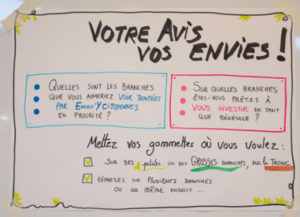 VOTRE AVIS
VOS ENVIES !
QUELLES SONT LES BRANCHES
QUE VOUS AIMERIEZ VOIR TENTÉES
PAR ENERG'Y CITOYENNES
EN PRIORITÉ ?
SUR QUELLES BRANCHES
ÊTES-VOUS PRÊT.E.S À
VOUS INVESTIR EN TANT
QUE BÉNÉVOLE ?
Mettez vos gommettes où vous voulez :
SUR DES petites OU DES GROSSES BRANCHES, SUR LE TRONC,
RÉPARTIES SUR PLUSIEURS BRANCHES
OU AU MÊME ENDROIT ...